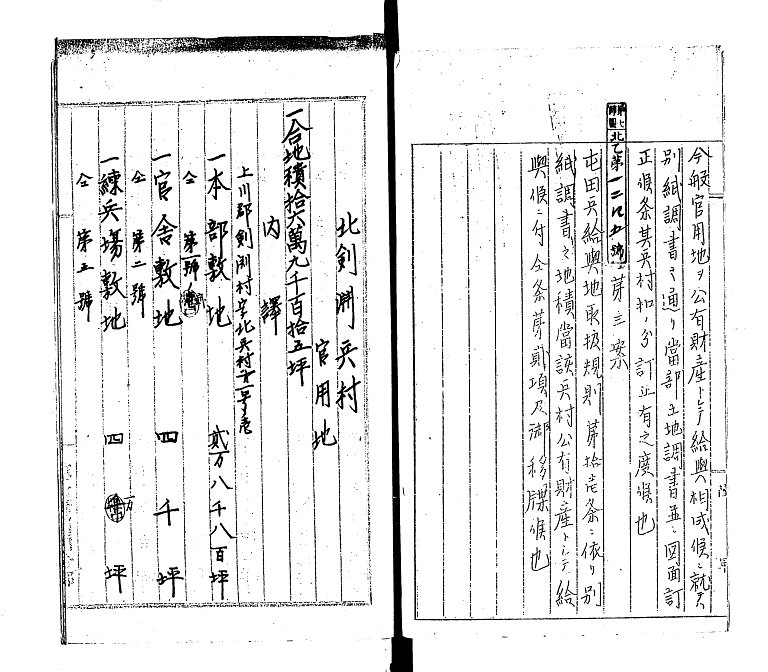 今般官用地ヲ公有財産トシテ給與相成候ニ就テハ
別紙調書之通リ當部土地調書並ニ図面訂
正候条其兵村扣ノ分訂正有之度候也
北乙第一二四五號ノ三 第三案
屯田兵給與地取扱規則第拾壱条ニ依リ別
紙調書之地積當該兵村公有財産トシテ給
與候ニ付仝条第貳項及御移牒候也
北剣淵兵村
官用地
一合地積拾六萬九千百拾五坪
内譯
上川郡剣淵村字北兵村廿一号ノ
一本部敷地 貳万八千八百坪
仝 第一號
一官舎敷地 四千坪
仝 第二號
一練兵場敷地 四万 坪
仝 第三號